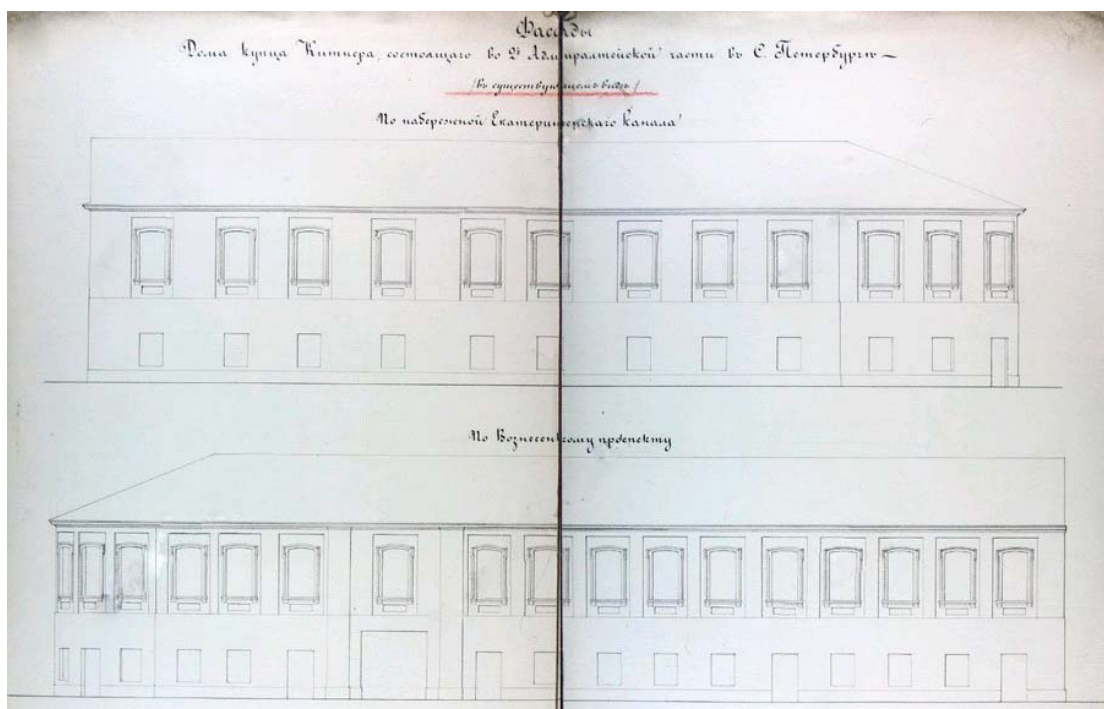 Фасады
Дома купца Китнера, состоящаго во 2й Адмиралтейской части въ С. Петербургѣ —
/въ существующемъ видѣ/
По набережной Екатерининскаго канала
По Вознесенскому проспекту